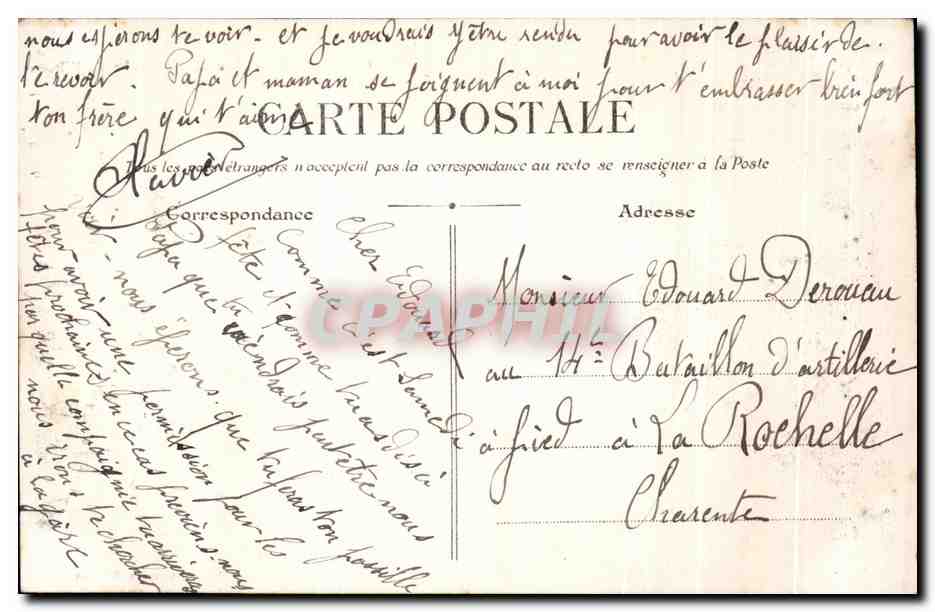 nous espérons te voir - et je voudrais y être rendu pour avoir le plaisir de
te revoir. Papa et maman se joignent à moi pour t'embrasser bien fort
ton frère qui t'aime
CARTE POSTALE
Tous les pays étrangers n'acceptent pas la correspondance au recto se renseigner à la Poste
Correspondance
Adresse
Cher Edouard
Comme c'est Samedi
fête et comme tu as dis à
Papa que tu viendrais peut être nous
voir - nous espérons que tu feras ton possible
pour avoir une permission pour les
fêtes prochaines, en ce cas préviens-nous
par quelle compagnie tu arriveras
nous irons te chercher
à la gare
Monsieur Edouard Deroueau
au 14e Bataillon d'artillerie
à pied à La Rochelle
Charente
CPAPHIL